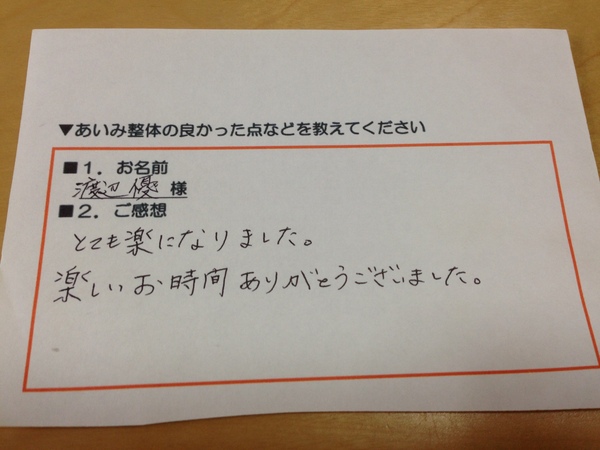 ▼あいみ整体の良かった点などを教えてください
■1．お名前
渡辺 優 様
■2．ご感想
とても楽になりました。
楽しいお時間ありがとうございました。